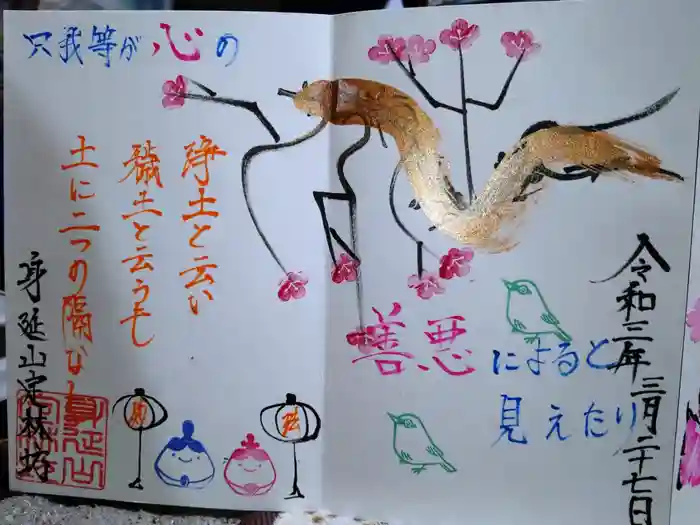 浄土と云い
穢土と云うも
土に二つの隔なし
只我等が心の
善悪によると
見えたり
令和三年三月二十七日
身延山定林坊
身延山